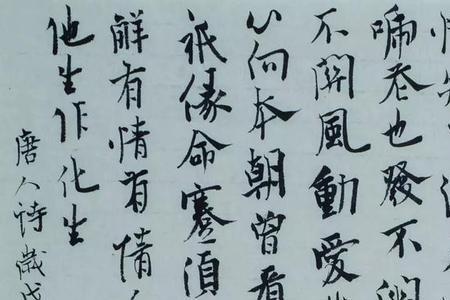 啼也發不
不關風動愛
心向本朝曾看
祇緣命蹇須
解有情有情
他生作化生
唐人詩歲戊